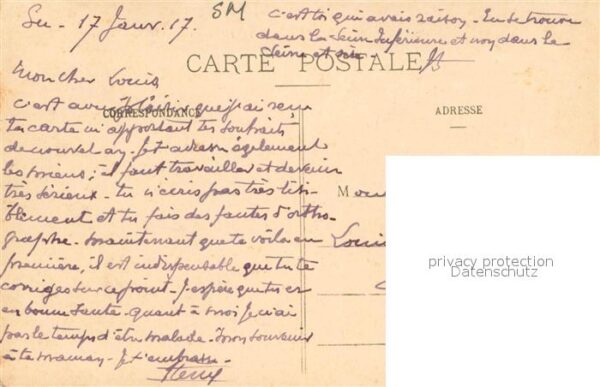 17 Janv. 17.
SM
c'est toi qui avais raison. En se trouve
dans la Seine Inférieure et non dans la
Seine et
CARTE POSTALE
Mon cher Louis
CORRESPONDANCE
ADRESSE
c'est avec plaisir que j'ai reçu
ta carte m'apportant tes souhaits
de nouvel an. Je t'adresse également
les miens; il faut travailler et devenir
très sérieux. tu n'écris pas très lisi-
blement et tu fais des fautes d'ortho-
graphe. Maintenant que te voilà en
première, il est indispensable que tu te
corriges sur ce point. J'espère que tu es
en bonne santé. Quant à moi je n'ai
pas le temps d'être malade. Mon souvenir
à ta maman. Je t'embrasse.
M
Louis
privacy protection
Datenschutz